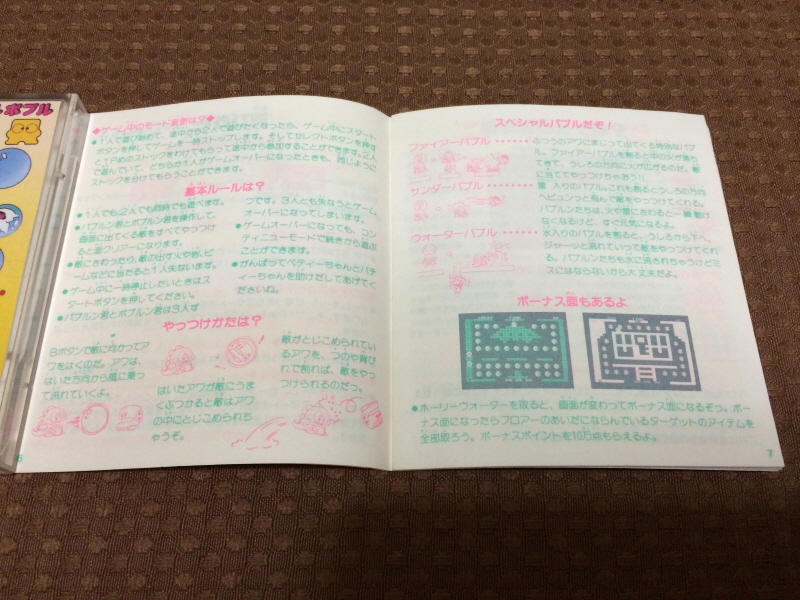 ボブル
◆ゲーム中のモード変更は?◆
●1人で遊び始めて、途中から2人で遊びたくなったら、ゲーム中にスタートボタンを押してゲームを一時ストップします。そしてセレクトボタンを押すと1Pめのストックをわけてもらって途中から参加することができます。2人で遊んでいて、どちらか1人がゲームオーバーになったときも、同じようにストックを分けてもらうことができます。
基本ルールは?
●1人でも2人でも同時でも遊べます。
●バブルン君とボブルン君を操作して、
画面に出てくる敵をすべてやっつけ
ると面クリアーになります。
●敵にさわったり、敵の出す火や岩、ビ
ームなどに当たると1人失ないます。
●ゲーム中に一時停止したいときはス
タートボタンを押してください。
●バブルン君とボブルン君は3人ず
つです。3人とも失なうとゲーム
オーバーになってしまいます。
●ゲームオーバーになっても、コン
ティニューモードで続きから遊ぶ
ことができます。
●がんばってベティーちゃんとパテ
ィーちゃんを助けだしてあげてく
ださいね。
やっつけかたは?
Bボタンで敵に向かってア
ワをはくのだ。アワは、
はいた方向から風に乗っ
て流れていくよ。
はいたアワが敵にうま
くぶつかると敵はアワ
の中にとじこめられち
ゃうぞ。
敵がとじこめられてい
るアワを、つのや背びれ
で割れば、敵をやっ
つけられるのだっ。
6
スペシャルバブルだぞ!
ファイアーバブル ・・・・・・ ふつうのアワにまじって出てくる特別なバブ
ル。ファイアーバブルを割ると中の火が落ち
てきて、うしろの方向に火が広がるのだ。敵
に当ててやっつけちゃおう!!
サンダーバブル ・・・・・・・
雷入りのバブル。これもあとうしろの方向
へビュンっと飛んで敵をやっつけてくれる。
バブルンたちは、火や雷にさわると一瞬動け
なくなるけど、すぐ元気になるよ。
ウォーターバブル ・・・・・・
水入りのバブルを割ると、うしろから下へ、
ジャーッと流れていって敵をやっつけてくれ
る。バブルンたちも水に流されちゃうけどミ
スにはならないから大丈夫だよ。
ボーナス面もあるよ
●ホーリーウォーターを取ると、画面が変わってボーナス面になるぞっ。ボー
ナス面になったらフロアーのあいだにならんでいるターゲットのアイテムを
全部取ろう。ボーナスポイントを10万点もらえるよ。
7